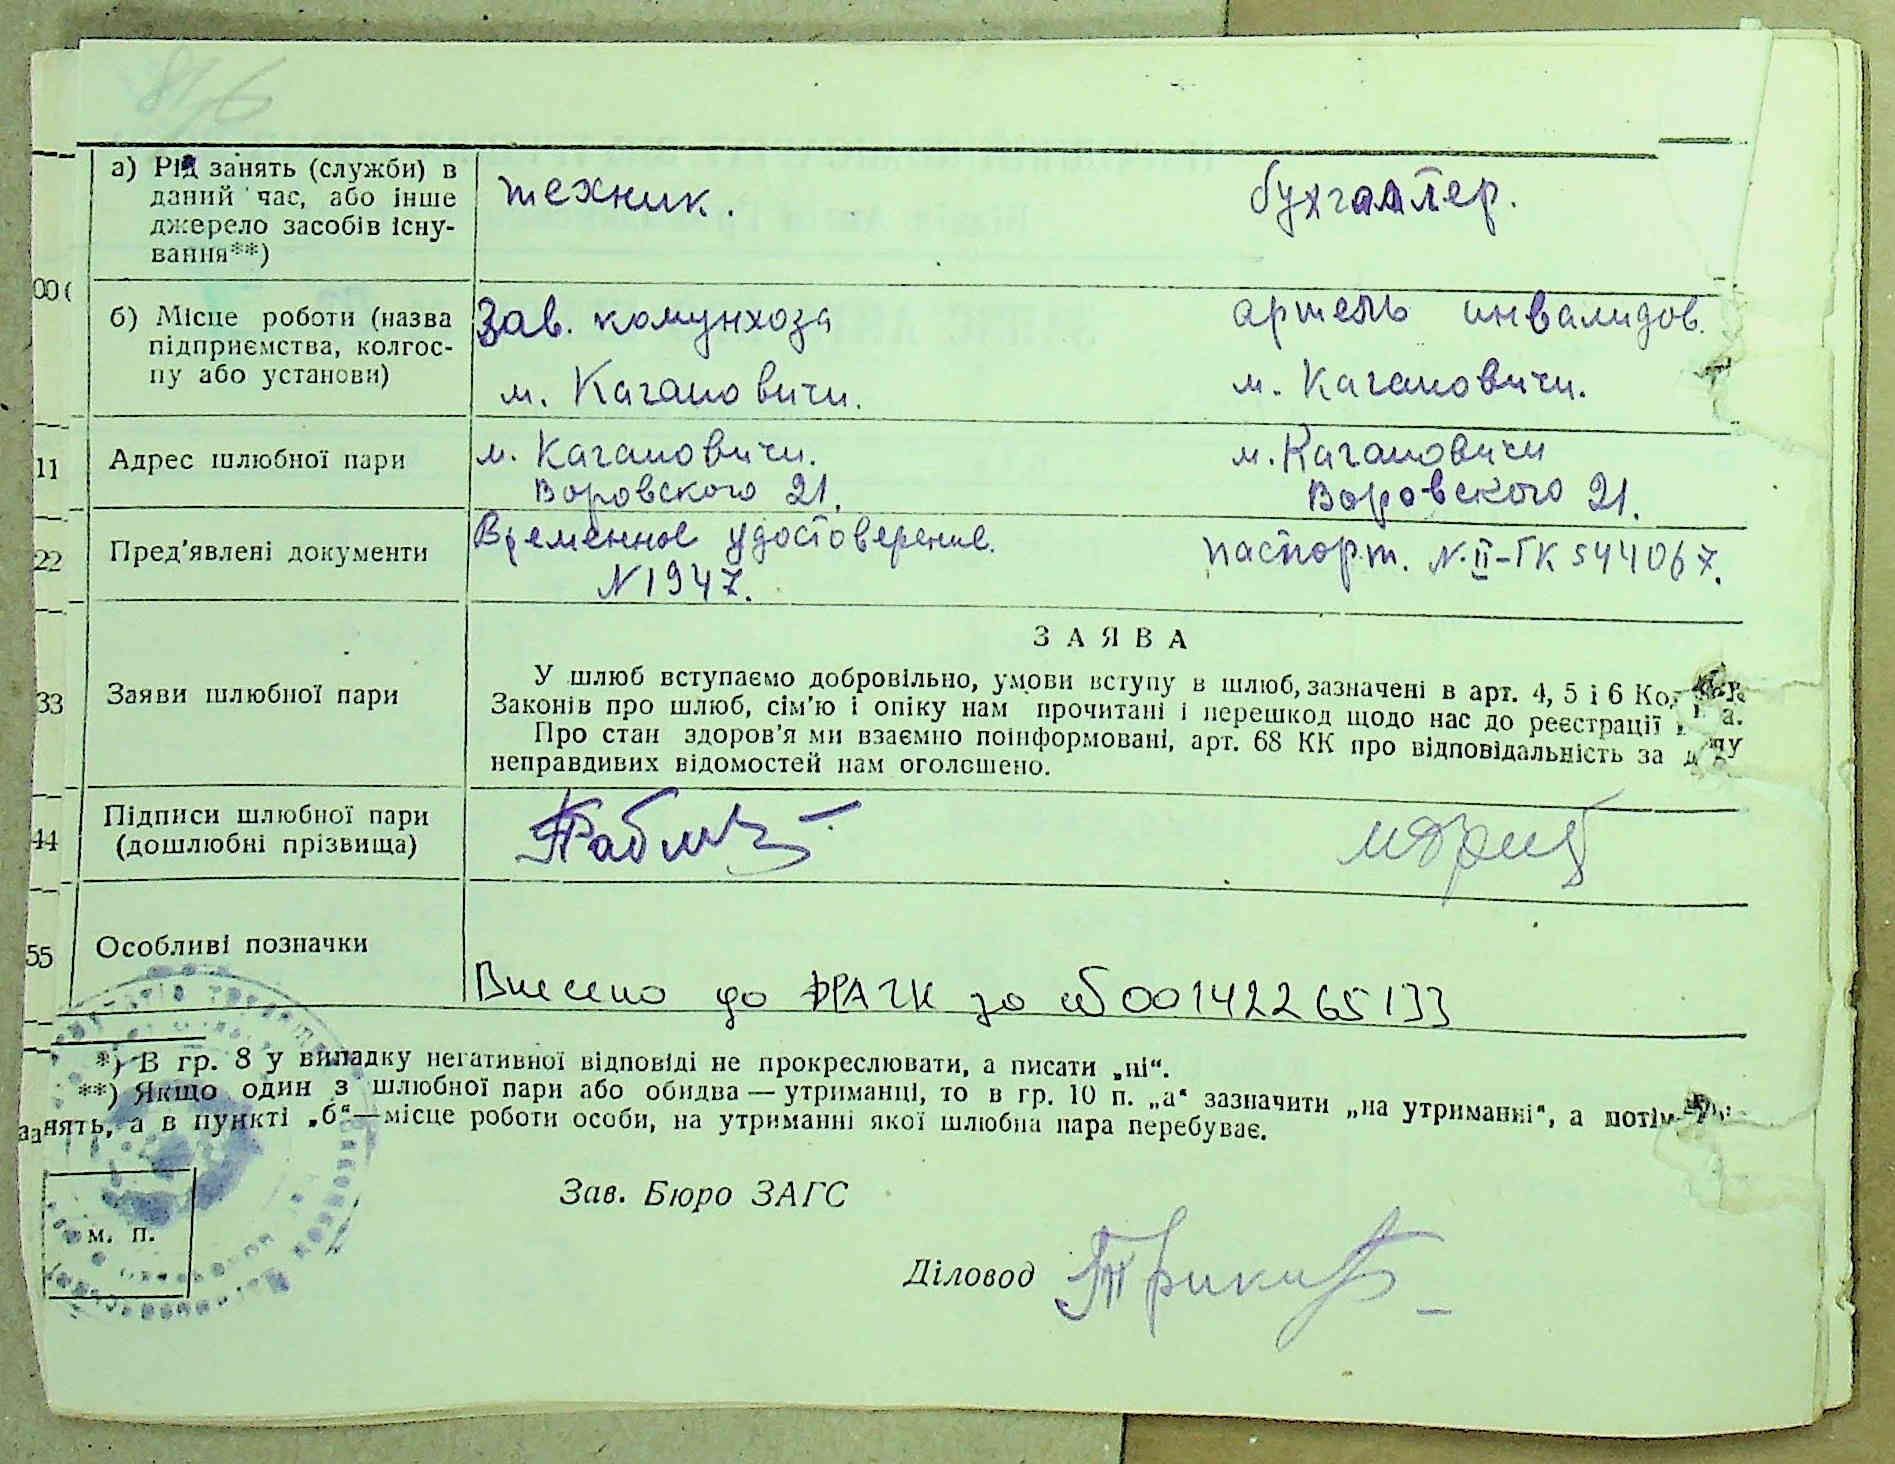 а) Рід занять (служби) в
даний час, або інше
джерело засобів існу-
вання**)
техник.
бухгалтер.
б) Місце роботи (назва
підприємства, колгос-
пу або установи)
Зав. комунхоза
м. Кагановичи.
артель инвалидов.
м. Кагановичи.
11
Адрес шлюбної пари
м. Кагановичи.
Воровского 21.
м. Кагановичи
Воровского 21.
22
Пред'явлені документи
Временное удостоверение.
N 1947.
паспорт. N. II-ГК 544067.
33
Заяви шлюбної пари
ЗАЯВА
У шлюб вступаємо добровільно, умови вступу в шлюб, зазначені в арт. 4, 5 і 6
Законів про шлюб, сім'ю і опіку нам прочитані і перешкод щодо нас до реєстрації
Про стан здоров'я ми взаємно поінформовані, арт. 68 КК про відповідальність за
неправдивих відомостей нам оголошено.
44
Підписи шлюбної пари
(дошлюбні прізвища)
55
Особливі позначки
Внесено до ДРАЦС за № 00142265133
*) В гр. 8 у випадку негативної відповіді не прокреслювати, а писати „ні“.
**) Якщо один з шлюбної пари або обидва — утриманці, то в гр. 10 п. „а“ зазначити „на утриманні“, а потім
занять, а в пункті „б“—місце роботи особи, на утриманні якої шлюбна пара перебуває.
м. п.
Зав. Бюро ЗАГС
Діловод